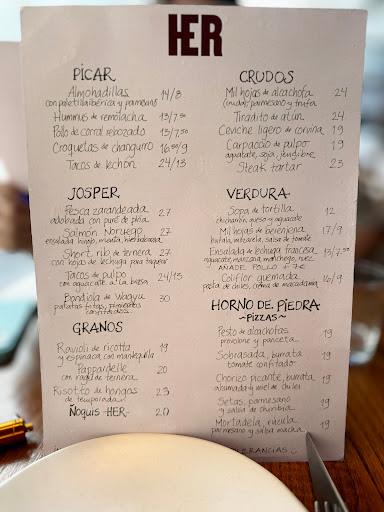 HER
PICAR
Almohadillas 14/8
con paletilla ibérica y parmesano
Hummus de remolacha 13/7,50
Pollo de corral rebozado 13/7,50
Croquetas de changurro 16,50/9
Tacos de lechón 24/13
JOSPER
Pesca zarandeada 27
adobada con puré de piña
Salmón Noruego 27
ensalada hinojo, menta, hierbabuena
Short rib de ternera 27
con hojas de lechuga para taquear
Tacos de pulpo 24/13
con aguacate a la brasa
Bondiola de Wagyu 30
patatas fritas, pimientos
confitados
GRANOS
Ravioli de ricotta 19
y espinaca con mantequilla
Pappardelle 20
con ragú de ternera
Risotto de hongos 23
de temporada
Ñoquis HER 20
CRUDOS
Mil hojas de alcachofa 24
(cruda), parmesano y trufa
Tiradito de atún 24
Ceviche ligero de corvina 19
Carpaccio de pulpo 19
aguacate, soja, jengibre
Steak tartar 23
VERDURA
Sopa de tortilla 12
chicharrón, queso y aguacate
Mil hojas de berenjena 17/9
burrata, mozzarella, salsa de tomate
Ensalada de bohighs francesa 13/7,50
aguacate, manzana, manchego, nuez
AÑADE POLLO +7€
Coliflor quemada 16/9
pasta de chiles, crema de macadamia
HORNO DE PIEDRA
~PIZZAS~
Pesto de alcachofas 19
provolone y panceta
Sobrasada, burrata 19
tomate confitado
Chorizo picante, burrata 19
ahumada y miel de chiles
Setas, parmesano 19
y salsa de chiribia
Mortadela, rúcula 19
parmesano y salsa macha